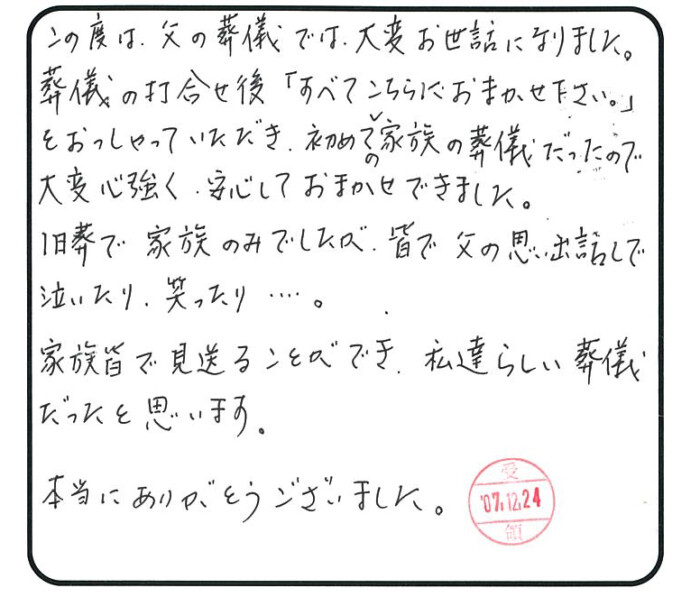 この度は、父の葬儀では、大変お世話になりました。
葬儀の打合せ後「すべてこちらにおまかせ下さい。」
とおっしゃっていただき、初めての家族の葬儀だったので
大変心強く、安心しておまかせできました。
1日葬で家族のみでしたが、皆で父の思い出話しで
泣いたり、笑ったり….。
家族皆で見送ることができ、私達らしい葬儀
だったと思います。
本当にありがとうございました。
受
'07.12.24
領